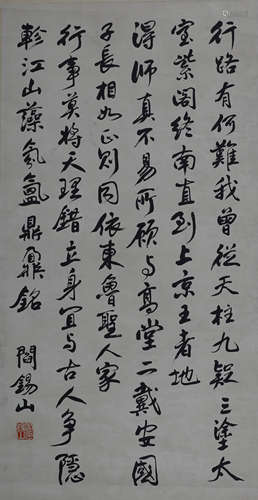 行路有何難我曾從天柱九疑三塗太
室紫阁終南直到上京王者地
得師真不易所願与高堂二戴安國
子長相如正則同依東魯聖人家
行事莫將天理錯立身宜与古人争隱
軫江山藻氛氳鼎鼐銘
閻錫山